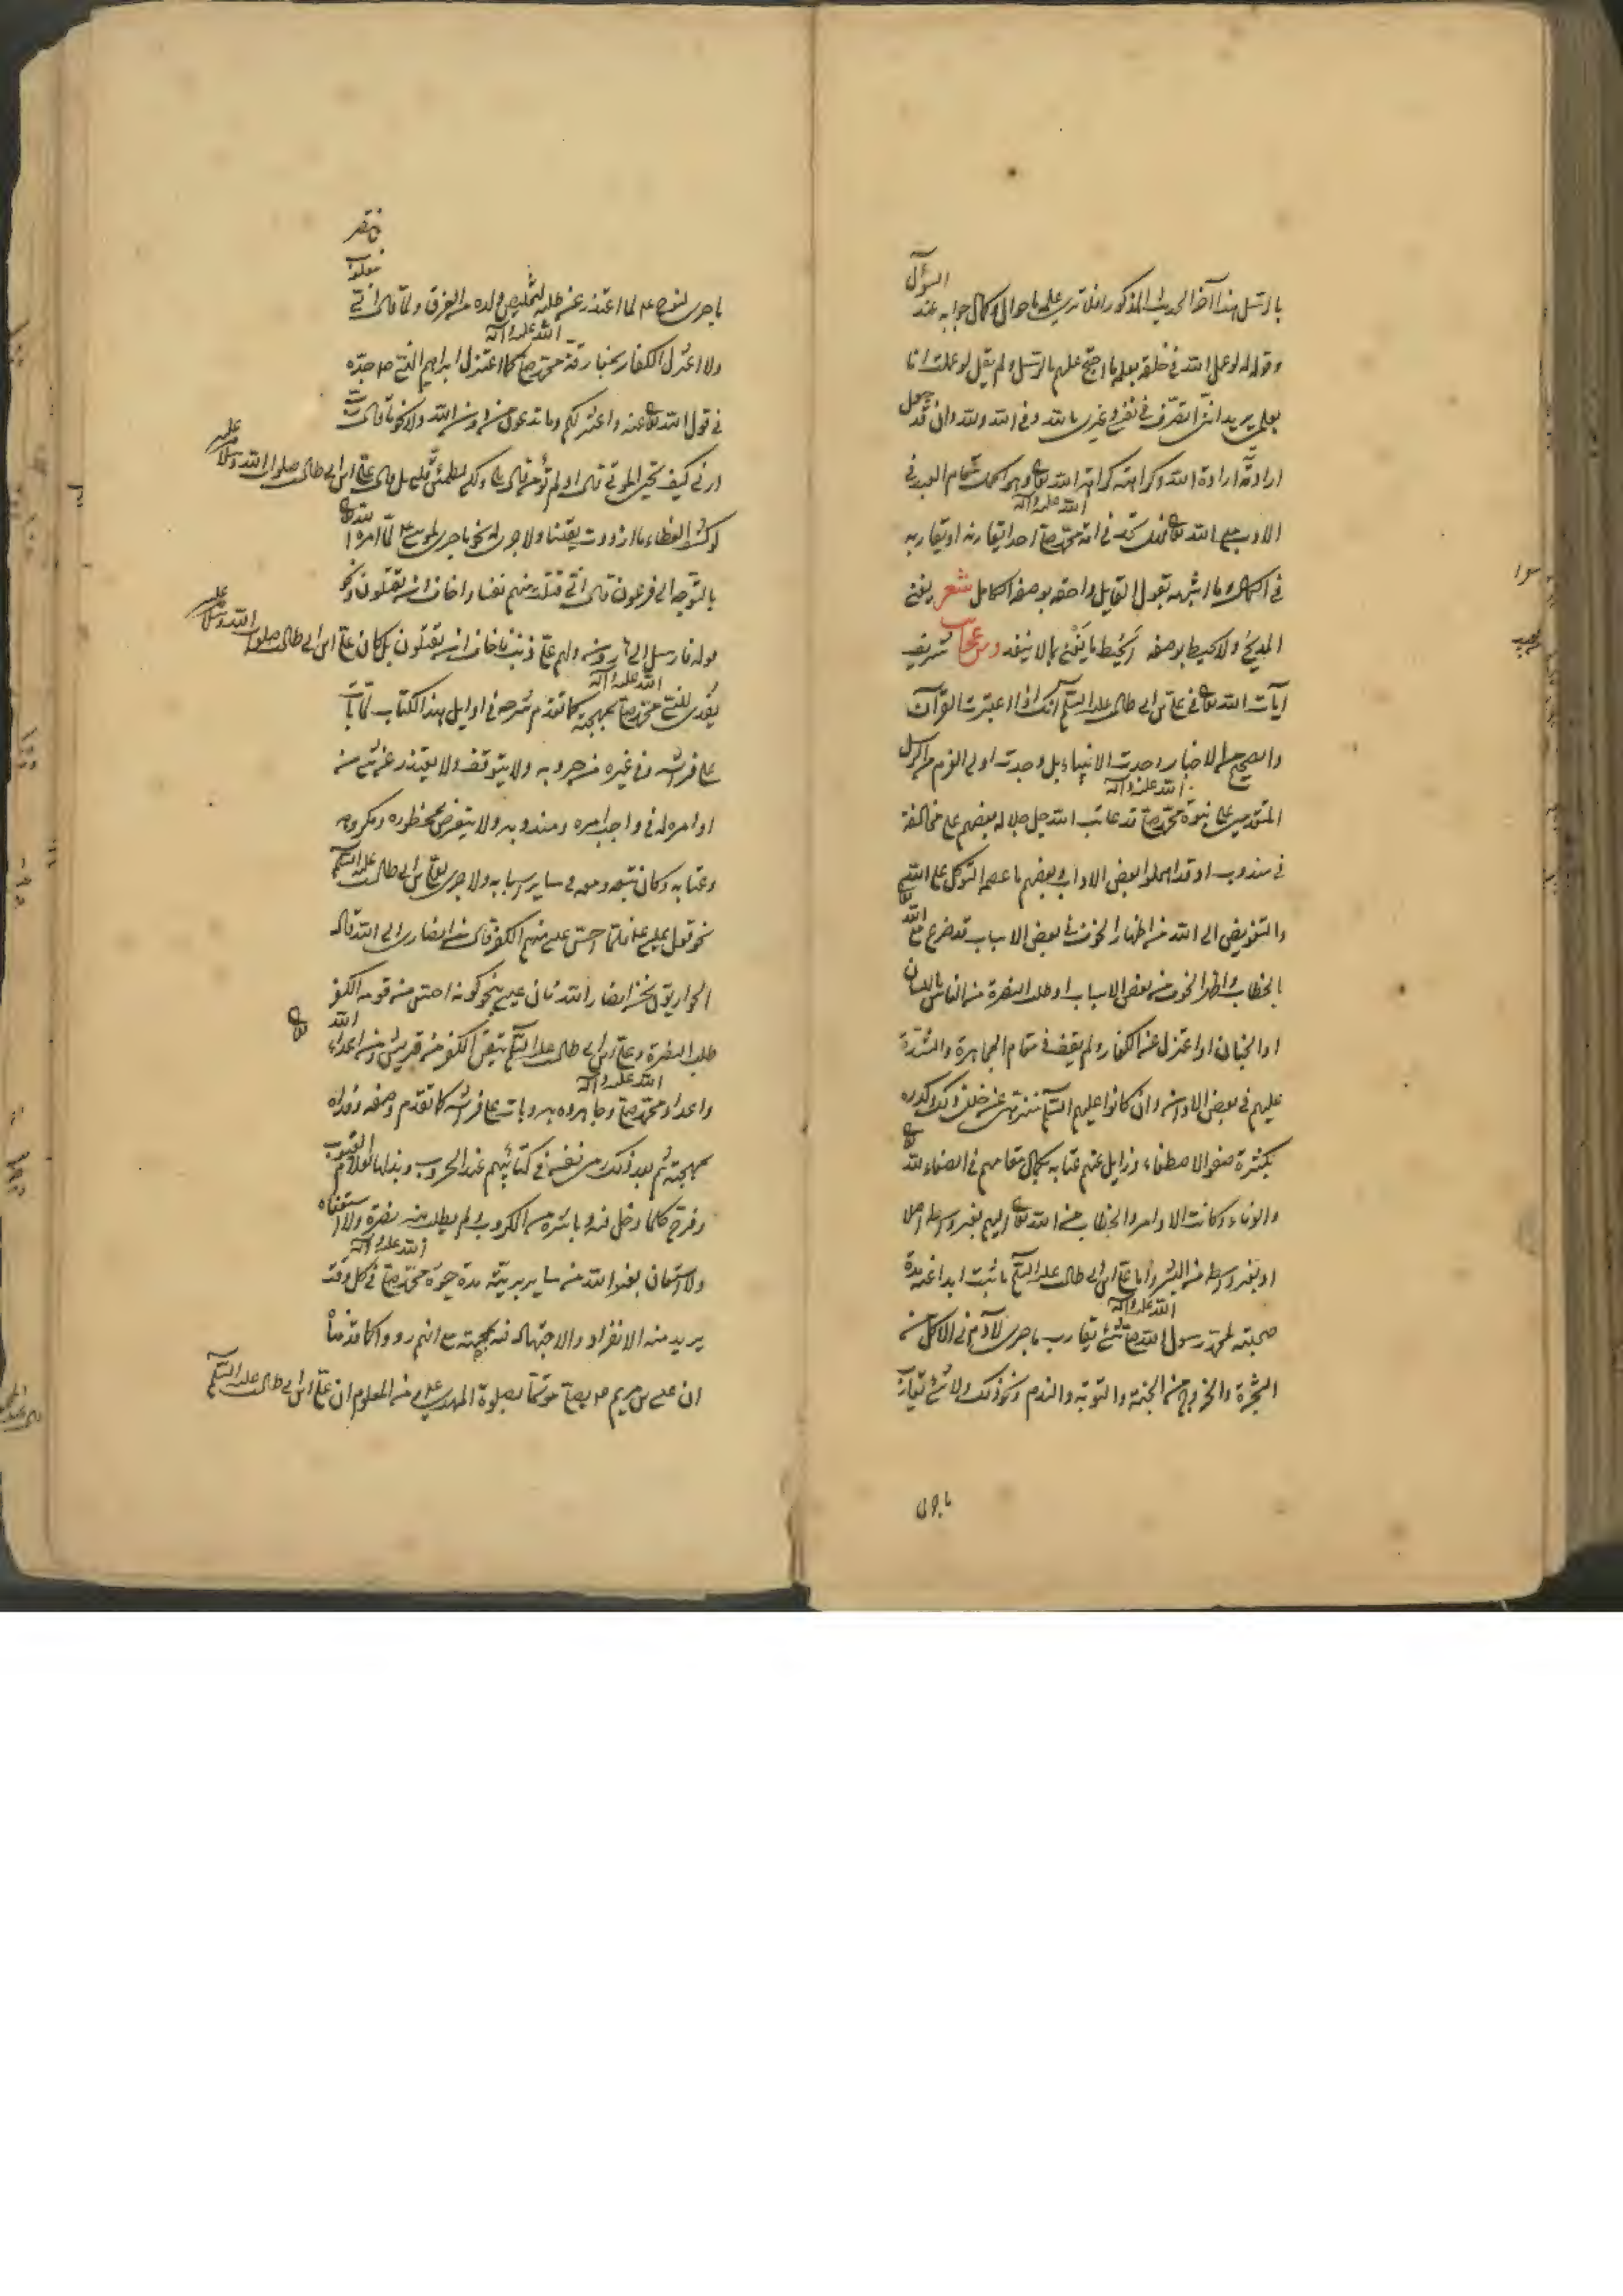 السؤال
بالرسل هذا آخر الحديث المذكور افلا ترى علمه باحوال وكمال جوابه عند
وقوله لو عمل الله في خلقه بعلمه ما احتج عليهم بالرسل ولم يقل لو عملت انا
بعلمي يريد انني اتصرف في نفسي وغيري بالله وفي الله ولله وان قد جعل
ارادته ارادة الله وكراهته كراهته الله تعالى وهو كمال مقام العبد في
الادب مع الله تعالى فهل تجد في امة محمد صلى الله عليه وآله احدا يقارنه او يقاربه
في الكمال وما اشبهه بقول القايل واحقه بوصفه الكامل شعر يفنى
المديح ولا يحيط بوصفه ايحيط ما يفنى بما لا ينفد ومن عجائب شريف
آيات الله تعالى في علي بن ابي طالب عليه السلم انك اذا اعتبرت القرآن
والصحيح من الاخبار وجدت الانبياء بل وجدت اولي العزم من الرسل
المتقدمين على نبوة محمد صلى الله عليه وآله قد عاتب الله جل جلاله بعضهم على مخالفة
في مندوب او قد اهملوا بعض الاداب وبعضهم ما عصمه التوكل على الله تعالى
والتفويض الى الله من اظهار الخوف في بعض الاسباب قد ضرع مع الله
بالخطاب واظهر الخوف من بعض الاسباب او طلب النصرة من الناس باللسان
او الجنان او اعتزل عن الكفار ولم يقف في مقام المجاهرة والشدة
عليهم في بعض الاوقات وان كانوا عليهم السلم منزهين عن خلل ذلك وكدره
بكثرة صفو الاصطفاء وزايل عنهم عتابه بكمال مقامهم في الصفاء لله تعالى
والوفاء وكانت الاوامر والخطاب من الله تعالى اليهم بغير واسطة اصلا
او بغير واسطة من البشر واما علي بن ابي طالب عليه السلم ما ثبت ابدا عنه مدة
صحبته لمحمد رسول الله صلى الله عليه وآله شئ يقارب ما جرى لآدم في الاكل من
الشجرة والخروج من الجنة والتوبة والندم ونحو ذلك ولا شئ يقارب
ما جرى
ما جرى لنوح عم لما اعتذر عن طلبه لتخليص ولده من الغرق ولما قال اني مغلوب فانتصر
ولا اعتزل الكفار بمفارقة محمد صلى الله عليه وآله كما اعتزل ابراهيم النبي عم جده
في قول الله تعالى عنه واعتزلكم وما تدعون من دون الله ولا نحو ما قال رب
ارني كيف تحيي الموتى قال اولم تؤمن قال بلى ولكن ليطمئن قلبي بل قال علي بن ابي طالب صلوات الله وسلامه عليه
لو كشف الغطاء ما ازددت يقينا ولا جرى له نحو ما جرى لموسى عم لما امره الله تعالى
بالتوجه الى فرعون قال اني قتلت منهم نفسا واخاف ان يقتلون ونحو
قوله فارسل الى هارون ولهم علي ذنب فاخاف ان يقتلون بل كان علي بن ابي طالب صلوات الله وسلامه عليه
يفدي النبي محمد صلى الله عليه وآله بمهجته كما تقدم شرحه في اوايل هذا الكتاب لما بات
على فراشه وفي غيره من حروبه ولا يتوقف ولا يعتذر عن شئ من
اوامره له في واجب امره ومندوبه ولا يتعرض لمحظوره ومكروهه
وعتابه وكان متبعه ومعه في ساير اسبابه ولا جرى لعلي بن ابي طالب عليه السلم
نحو قول عيسى عم فلما احس عيسى منهم الكفر قال من انصاري الى الله قال
الحواريون نحن انصار الله فان عيسى بنحو كونه احس من قومه الكفر
طلب النصرة وعلي بن ابي طالب عليه السلم تيقن الكفر من قريش ومن اعداء الله تعالى
واعداء محمد صلى الله عليه وآله وجاهروه به وبات على فراشه كما تقدم وصفه وفداه
بمهجته ثم بعد ذلك رمى نفسه في كتائبهم عند الحروب وبذلها لعلام الغيوب
وفرح كلما دخل فيه وباشره من الكروب ولم يطلب منه نصرة ولا استعفاه
ولا استعان بغير الله من ساير بريته مدة حيوة محمد صلى الله عليه وآله في كل وقت
يريد منه الانفراد والاجتهاد فيه بمهجته مع انهم رووا كما قدمناه
ان عيسى بن مريم عم يصلي مؤتما بصلوة المهدي عم ومن المعلوم ان علي بن ابي طالب عليه السلم